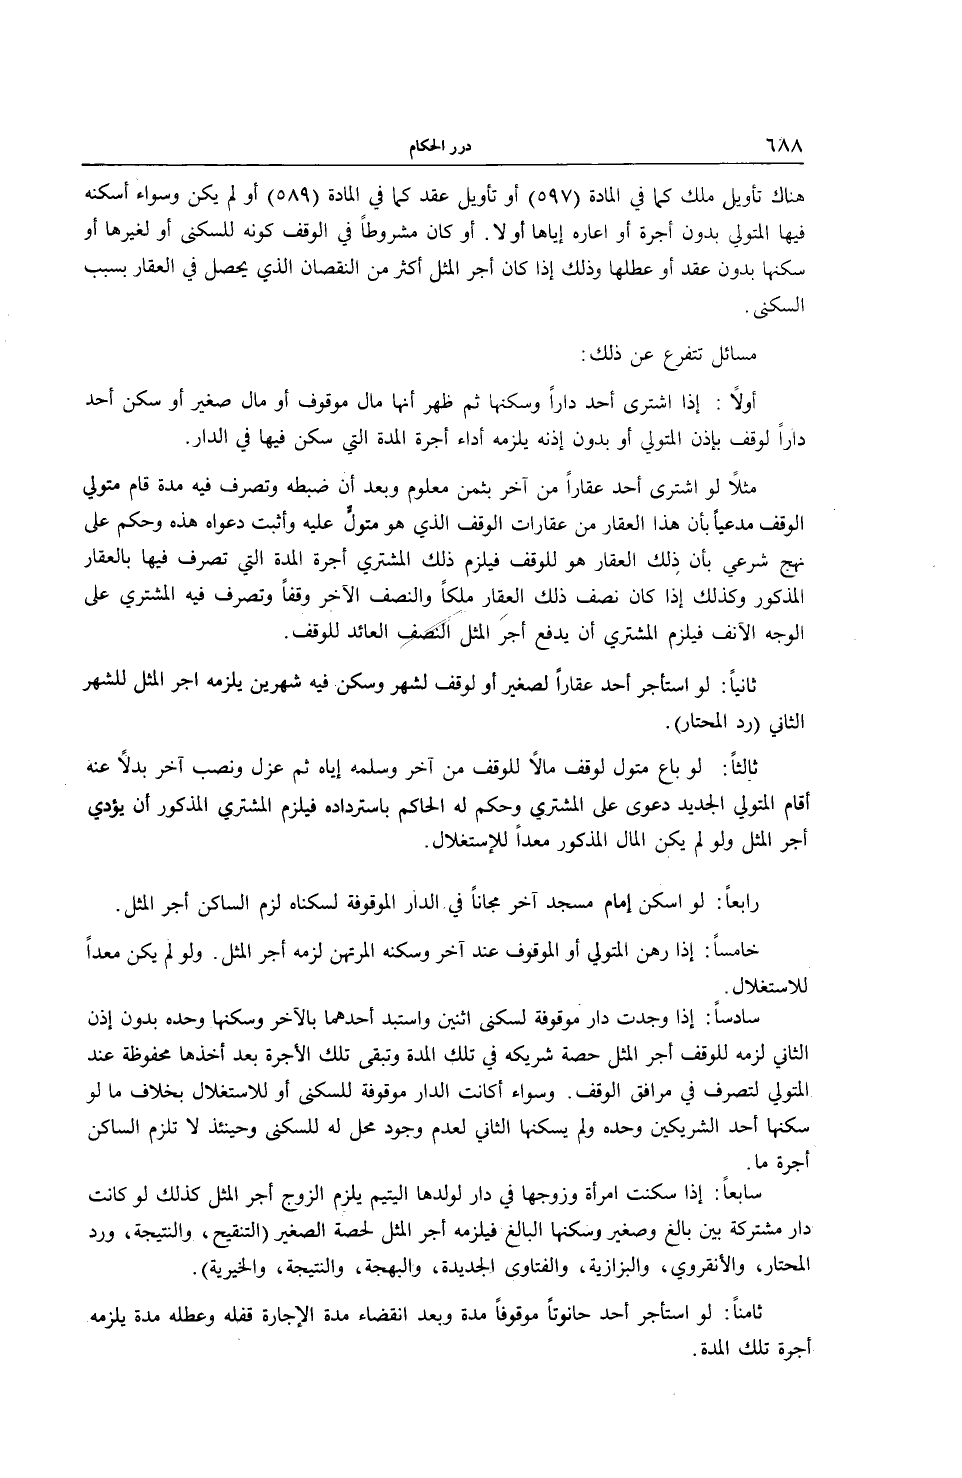 ٦٨٨ درر الحكام
هناك تأويل ملك كما في المادة (٥٩٧) أو تأويل عقد كما في المادة (٥٨٩) أو لم يكن وسواء أسكنه
فيها المتولي بدون أجرة أو اعاره إياها أو لا. أو كان مشروطاً في الوقف كونه للسكنى أو لغيرها أو
سكنها بدون عقد أو عطلها وذلك إذا كان أجر المثل أكثر من النقصان الذي يحصل في العقار بسبب
السكنى.
مسائل تتفرع عن ذلك:
أولاً : إذا اشترى أحد داراً وسكنها ثم ظهر أنها مال موقوف أو مال صغير أو سكن أحد
داراً لوقف بإذن المتولي أو بدون إذنه يلزمه أداء أجرة المدة التي سكن فيها في الدار.
مثلاً لو اشترى أحد عقاراً من آخر بثمن معلوم وبعد أن ضبطه وتصرف فيه مدة قام متولي
الوقف مدعياً بأن هذا العقار من عقارات الوقف الذي هو متولٌ عليه وأثبت دعواه هذه وحكم على
نهج شرعي بأن ذلك العقار هو للوقف فيلزم ذلك المشتري أجرة المدة التي تصرف فيها بالعقار
المذكور وكذلك إذا كان نصف ذلك العقار ملكاً والنصف الآخر وقفاً وتصرف فيه المشتري على
الوجه الآنف فيلزم المشتري أن يدفع أجر المثل النصف العائد للوقف.
ثانياً: لو استأجر أحد عقاراً لصغير أو لوقف لشهر وسكن فيه شهرين يلزمه اجر المثل للشهر
الثاني (رد المحتار).
ثالثاً: لو باع متول لوقف مالاً للوقف من آخر وسلمه إياه ثم عزل ونصب آخر بدلاً عنه
أقام المتولي الجديد دعوى على المشتري وحكم له الحاكم باسترداده فيلزم المشتري المذكور أن يؤدي
أجر المثل ولو لم يكن المال المذكور معداً للإستغلال.
رابعاً: لو اسكن إمام مسجد آخر مجاناً في الدار الموقوفة لسكناه لزم الساكن أجر المثل.
خامساً: إذا رهن المتولي أو الموقوف عند آخر وسكنه المرتهن لزمه أجر المثل. ولو لم يكن معداً
للاستغلال.
سادساً: إذا وجدت دار موقوفة لسكنى اثنين واستبد أحدهما بالآخر وسكنها وحده بدون إذن
الثاني لزمه للوقف أجر المثل حصة شريكه في تلك المدة وتبقى تلك الأجرة بعد أخذها محفوظة عند
المتولي لتصرف في مرافق الوقف. وسواء أكانت الدار موقوفة للسكنى أو للاستغلال بخلاف ما لو
سكنها أحد الشريكين وحده ولم يسكنها الثاني لعدم وجود محل له للسكنى وحينئذ لا تلزم الساكن
أجرة ما.
سابعاً: إذا سكنت امرأة وزوجها في دار لولدها اليتيم يلزم الزوج أجر المثل كذلك لو كانت
دار مشتركة بين بالغ وصغير وسكنها البالغ فيلزمه أجر المثل لحصة الصغير (التنقيح، والنتيجة، ورد
المحتار، والأنقروي، والبزازية، والفتاوى الجديدة، والبهجة، والنتيجة، والخيرية).
ثامناً: لو استأجر أحد حانوتاً موقوفاً مدة وبعد انقضاء مدة الإجارة قفله وعطله مدة يلزمه
أجرة تلك المدة.